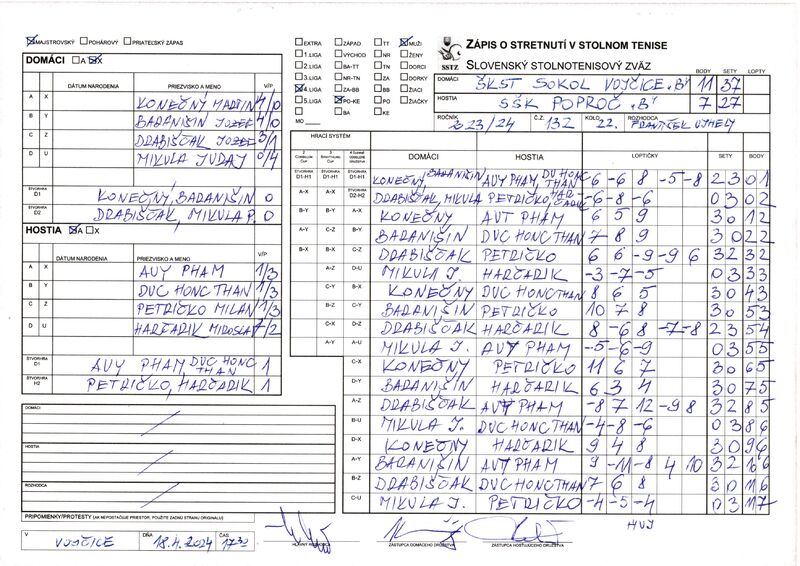 MAJSTROVSKÝ POHÁROVÝ PRIATEĽSKÝ ZÁPAS
DOMÁCI A X
DÁTUM NARODENIA PRIEZVISKO A MENO V/P
A X KONEČNÝ MARTIN 4/0
B Y BARANIŠIN JOZEF 4/0
C Z DRABIŠČAK JOZEF 3/1
D U MIKULA JURAJ 0/4
ŠTVORHRA D1 KONEČNÝ, BARANIŠIN 0
ŠTVORHRA D2 DRABIŠČAK, MIKULA P. 0
HOSTIA A X
DÁTUM NARODENIA PRIEZVISKO A MENO V/P
A X AUY PHAM 1/3
B Y DUC HONC THAN 1/3
C Z PETRIČKO MILAN 1/3
D U HARČARIK MIROSLAV 2/2
ŠTVORHRA D1 AUY PHAM, DUC HONC THAN 1
ŠTVORHRA H2 PETRIČKO, HARČARIK 1
DOMÁCI
HOSTIA
ROZHODCA
PRIPOMIENKY/PROTESTY (AK NEPOSTAČUJE PRIESTOR, POUŽITE ZADNÚ STRANU ORIGINÁLU)
V VOJČICE DŇA 18.4.2024 ČAS 17:30
EXTRA ZÁPAD TT MUŽI
1.LIGA VÝCHOD NR ŽENY
2.LIGA BA-TT TN DORCI
3.LIGA NR-TN ZA DORKY
4.LIGA ZA-BB BB ŽIACI
5.LIGA PO-KE PO ŽIAČKY
BA KE
MO
SSTZ
ZÁPIS O STRETNUTÍ V STOLNOM TENISE
SLOVENSKÝ STOLNOTENISOVÝ ZVÄZ
BODY SETY LOPTY
DOMÁCI ŠKST SOKOL VOJČICE "B" 11 37
HOSTIA SŠK POPROČ "B" 7 27
ROČNÍK 223/24 Č.Z. 132 KOLO 22. ROZHODCA FRANTIŠEK UJHELY
HRACÍ SYSTÉM
DOMÁCI HOSTIA LOPTIČKY SETY BODY
D1-H1 D1-H1 ŠTVORHRA D1-H1 KONEČNÝ, BARANIŠIN AUY PHAM, DUC HONC THAN -6 -6 8 -5 -8 2 3 0 1
A-X ŠTVORHRA D2-H2 DRABIŠČAK, MIKULA PETRIČKO, HARČARIK -6 -8 -6 0 3 0 2
B-Y A-Y A-X KONEČNÝ AUT PHÁM 6 5 9 3 0 1 2
A-Y C-Z B-Y BARANIŠIN DUC HONC THAN 7 8 9 3 0 2 2
B-X B-X C-Z DRABIŠČAK PETRIČKO 6 6 -9 -9 6 3 2 3 2
A-Z D-U MIKULA J. HARČARIK -3 -7 -5 0 3 3 3
C-Y B-X KONEČNÝ DUC HONC THAN 8 6 5 3 0 4 3
B-Z C-Y BARANIŠIN PETRIČKO 10 7 8 3 0 5 3
C-X D-Z DRABIŠČAK HARČARIK 8 -6 8 -7 -8 2 3 5 4
A-Y A-U MIKULA J. AUY PHAM -5 -6 -9 0 3 5 5
C-X KONEČNÝ PETRIČKO 11 6 7 3 0 6 5
D-Y BARANIŠIN HARČARIK 6 3 4 3 0 7 5
A-Z DRABIŠČAK AUY PHAM -8 7 12 -9 8 3 2 8 5
B-U MIKULA J. DUC HONC THAN -4 -8 -6 0 3 8 6
D-X KONEČNÝ HARČARIK 9 4 8 3 0 9 6
A-Y BARANIŠIN AUY PHAM 9 -11 -8 4 10 3 2 10 6
B-Z DRABIŠČAK DUC HONC THAN 7 6 8 3 0 11 6
C-U MIKULA J. PETRIČKO -4 -5 -4 0 3 11 7
HLAVNÝ ROZHODCA ZÁSTUPCA DOMÁCEHO DRUŽSTVA ZÁSTUPCA HOSŤUJÚCEHO DRUŽSTVA